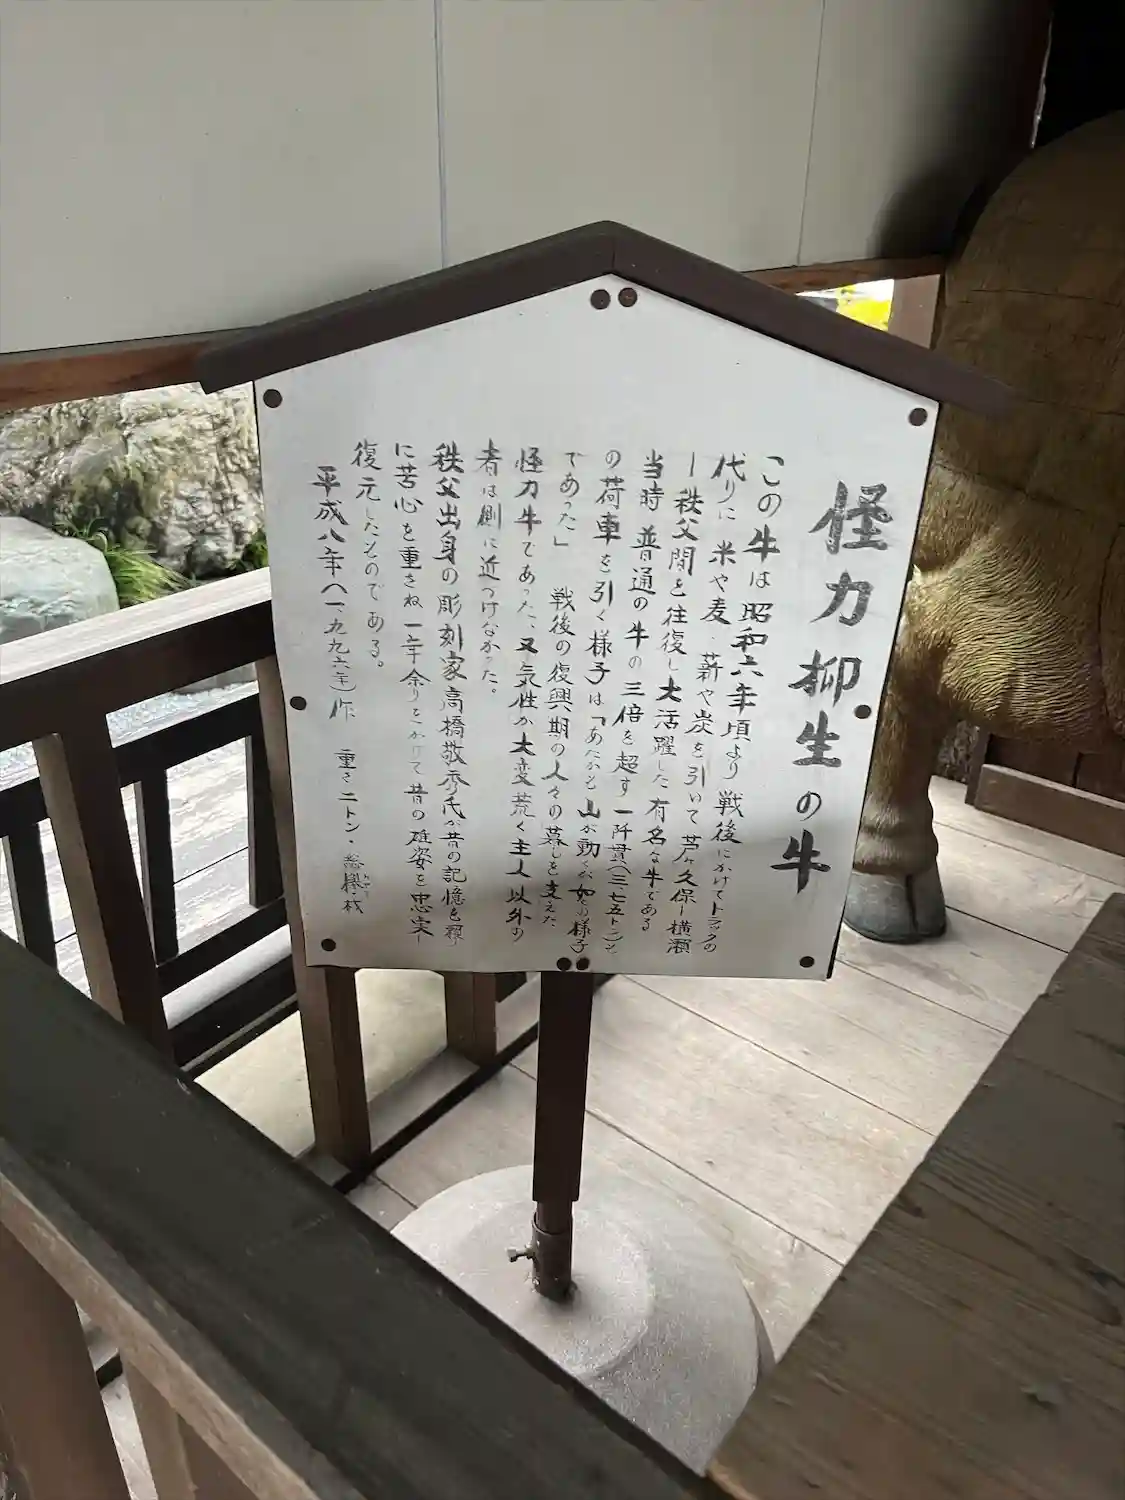 怪力柳生の牛
この牛は昭和六年頃より戦後にかけてトラックの
代りに米や麦、薪や炭を引いて芦ヶ久保ー横瀬
ー秩父間を往復し大活躍した有名な牛である
当時普通の牛の三倍を超す一阡貫(三.七五トン)と
の荷車を引く様子は「あたかも山が動くが如きの様子
であった」 戦後の復興期の人々の暮しを支えた
怪力牛であった、又気性が大変荒く主人以外の
者は側に近つけなかった。
秩父出身の彫刻家高橋敬秀氏が昔の記憶を頼り
に苦心を重さね一年余りをかけて昔の雄姿を忠実に
復元したものである。
平成八年(一、九九六年)作 重さ二トン・総欅材